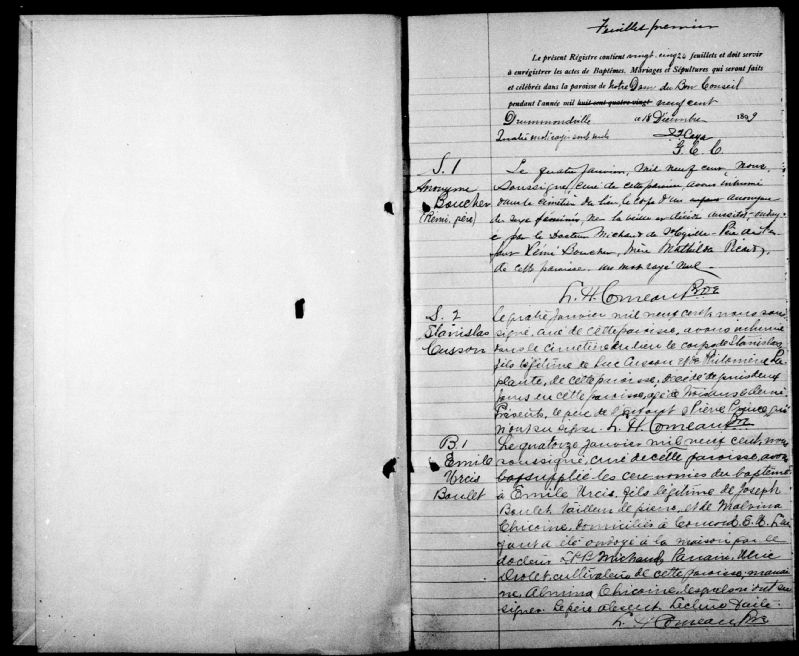 Feuillet premier
Le présent Régistre contient vingt cinq 25 feuillets et doit servir
à enrégistrer les actes de Baptêmes, Mariages et Sépultures qui seront faits
et célébrés dans la paroisse de Notre Dam du Bon Conseil
pendant l'année mil huit cent quatre vingt neuf cent
Drummondville ce 18 Décembre 1899
Quatre mots rayés sont nuls
G. C. C.
S. 1
Anonyme
Boucher
(Rémi, père)
Le quatre janvier, mil neuf cent, nous,
soussigné, curé de cette paroisse avons inhumé
dans le cimetière du lieu, le corps d'un anonyme
de sexe féminin, né la veille et décédé aussitôt
par le Docteur Michaud de
Rémi Boucher, mère Mathilda
de cette paroisse. un mot rayé nul.
L. H. Comeau Ptre
S. 2
Stanislas
Cusson
Le quatre janvier mil neuf cent, nous sous
signé, curé de cette paroisse, avons inhumé
dans le cimetière du lieu le corps de Stanislas,
fils légitime de Luc Cusson et de Philomène La
plante, de cette paroisse, décédé depuis deux
jours en cette paroisse, agé de trois ans et demi.
Présents, le père de l'enfant et Pierre qui
n'ont su signer. L. H. Comeau Ptre
B. 1
Emile
Urcis
Boulet
Le quatorze janvier mil neuf cent, nous
soussigné, curé de cette paroisse, avons
suppléé les cérémonies du baptême
à Emile Urcis, fils légitime de Joseph
Boulet, tailleur de pierre, et de Malvina
Chicoine, domiciliés à Concord E. U. L'en
fant a été ondoyé à la maison par le
docteur Michaud. Parrain, Ulric
Drolet, cultivateur de cette paroisse, marrai
ne, Chicoine, lesquels n'ont su
signer. Le père absent. Lecture faite.
L. H. Comeau Ptre